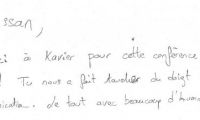 ssan,
ci à Xavier pour cette conférence
! Tu nous a fait toucher du doigt
ication. Le tout avec beaucoup d'humo